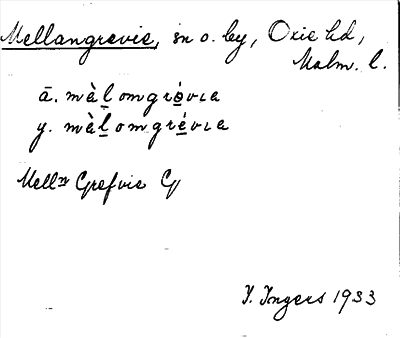 Mellangrevie, sn o. by, Oxie hd,
Malm. l.
ā. mὰlomgrévia
y. mὰlomgrévia
Mell:n Grefvie
I. Ingers 1933